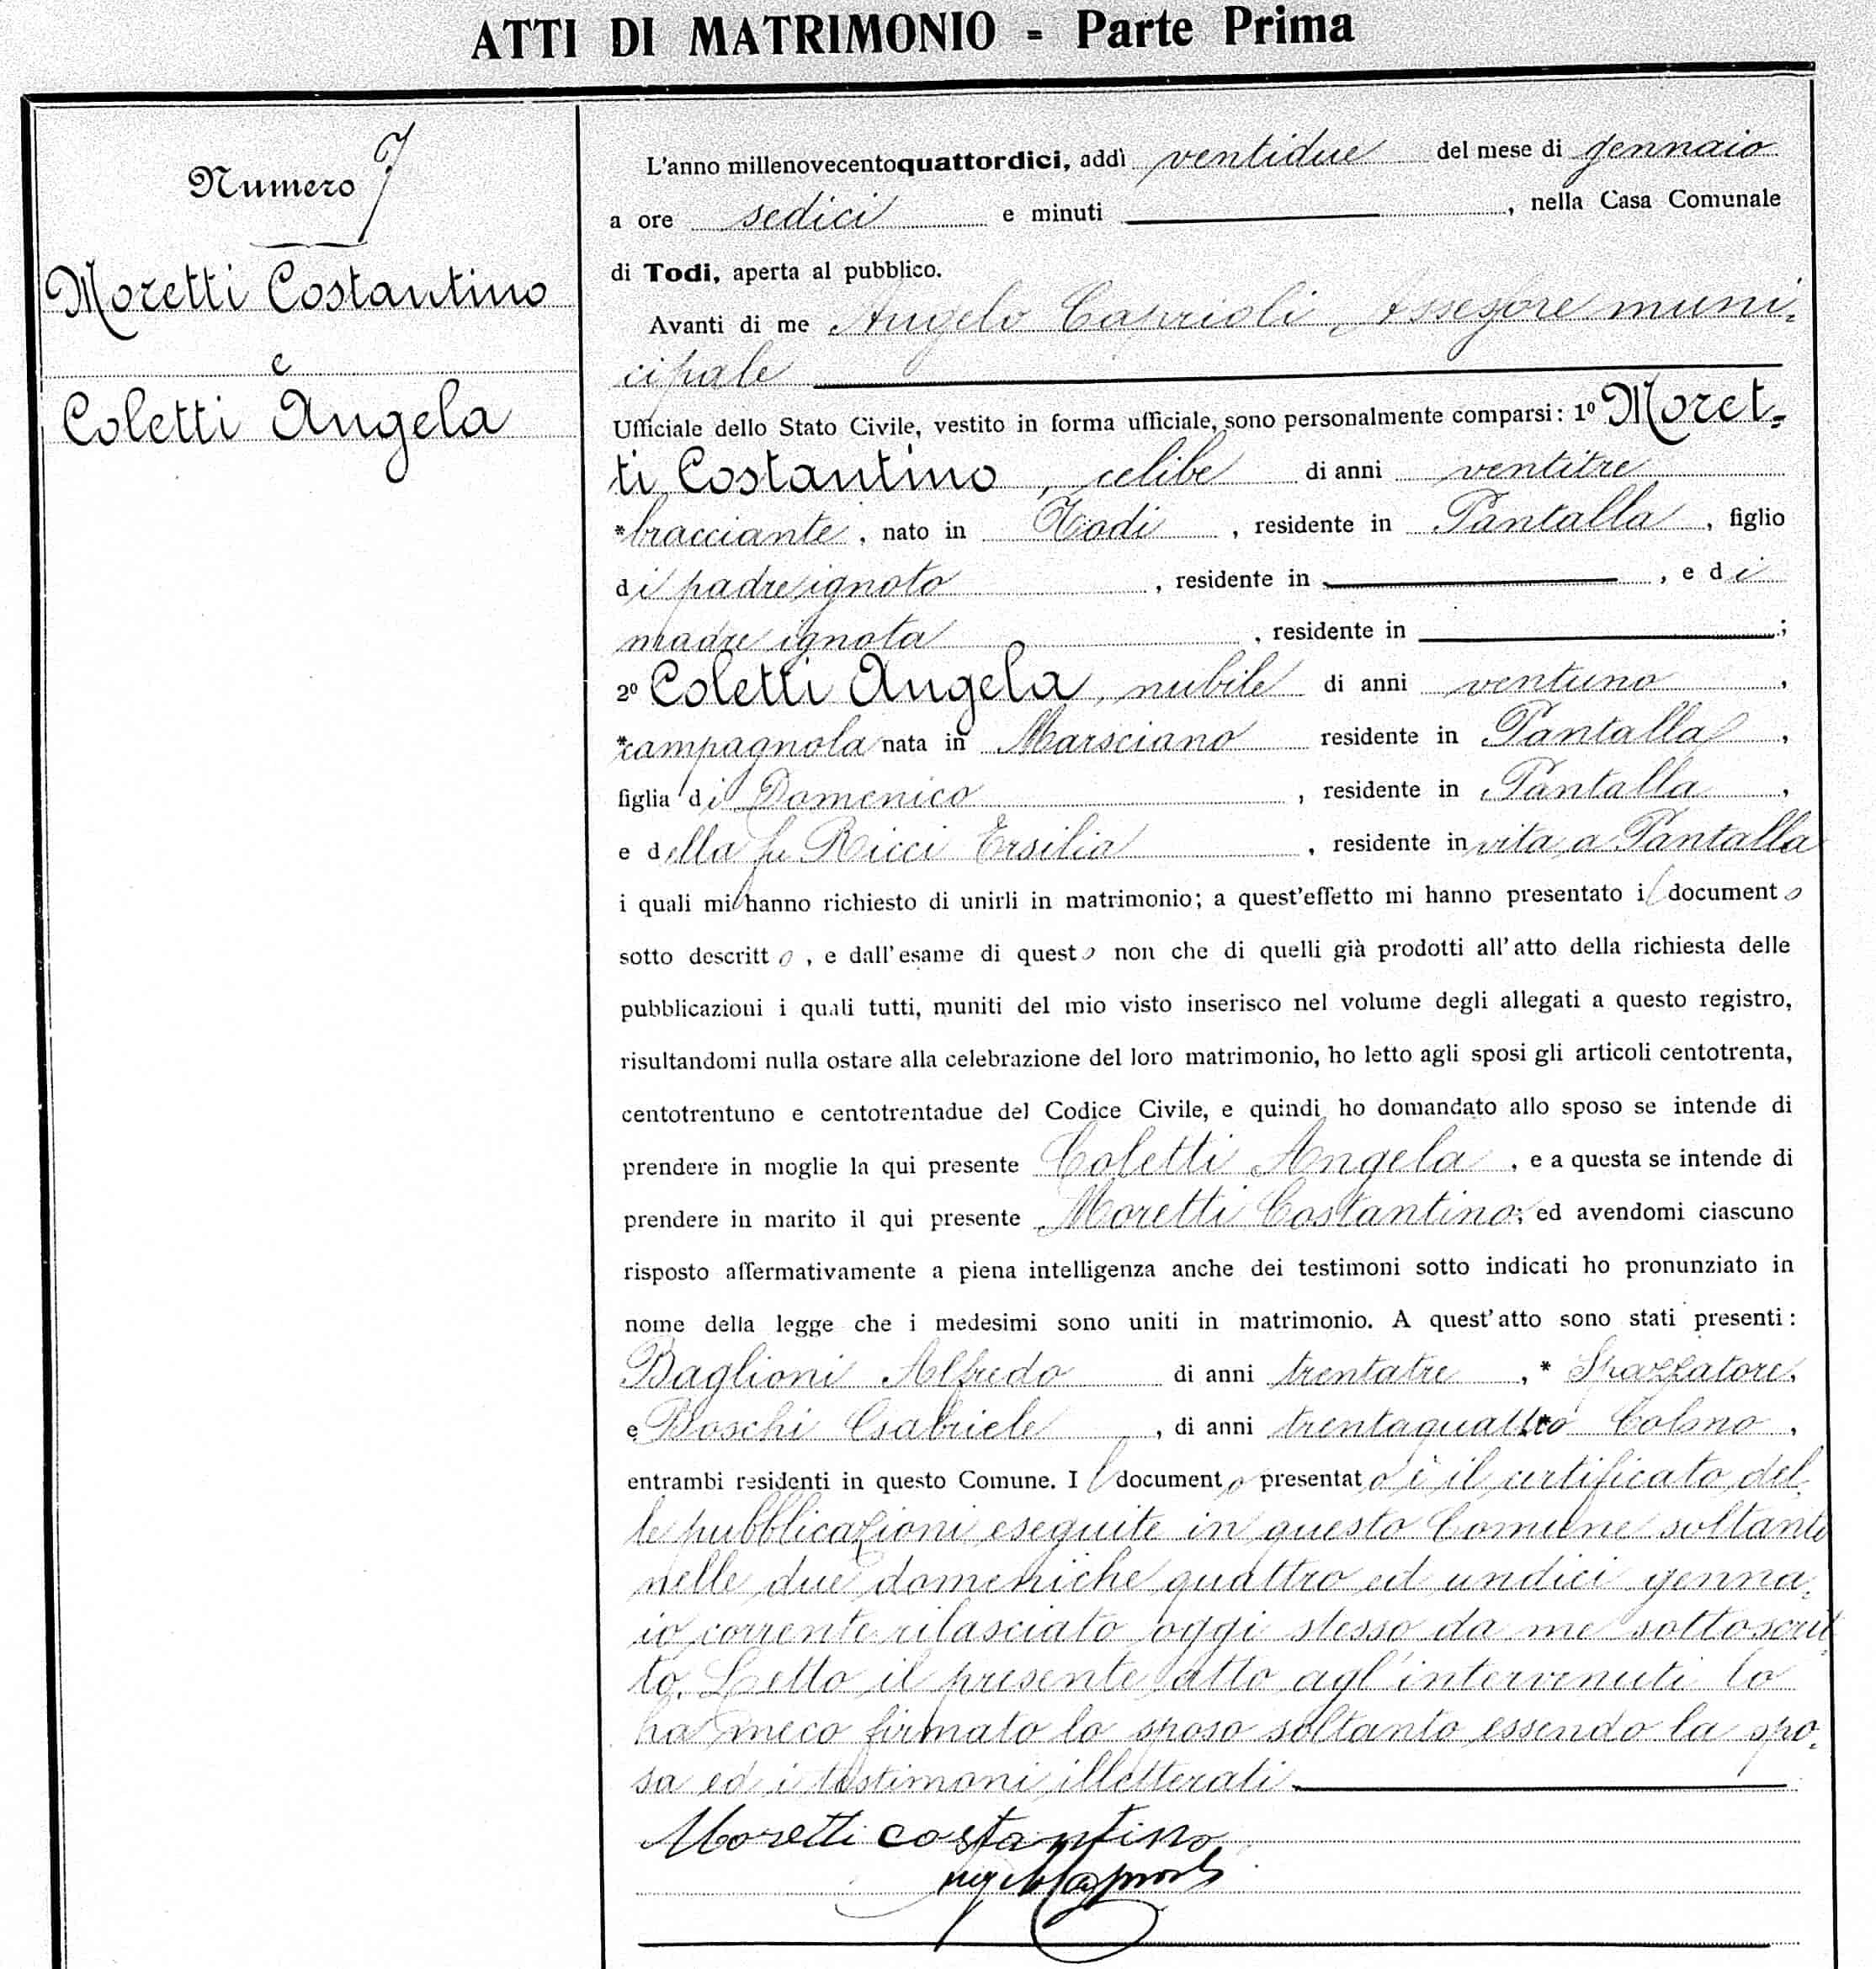 ATTI DI MATRIMONIO - Parte Prima
Numero 7
Moretti Costantino
e
Coletti Angela
L'anno millenovecentoquattordici, addì ventidue del mese di gennaio
a ore sedici e minuti , nella Casa Comunale
di Todi, aperta al pubblico.
Avanti di me Angelo Caprioli, Assessore muni-
cipale
Ufficiale dello Stato Civile, vestito in forma ufficiale, sono personalmente comparsi: 1º Moret-
ti Costantino, celibe di anni ventitre
*bracciante, nato in Todi, residente in Pantalla, figlio
di padre ignoto, residente in , e di
madre ignota, residente in ;
2º Coletti Angela, nubile di anni ventuno,
*campagnola nata in Marsciano residente in Pantalla,
figlia di Domenico, residente in Pantalla,
e della fu Ricci Ersilia, residente in vita a Pantalla
i quali mi hanno richiesto di unirli in matrimonio; a quest'effetto mi hanno presentato il documento
sotto descritto, e dall'esame di questo non che di quelli già prodotti all'atto della richiesta delle
pubblicazioni i quali tutti, muniti del mio visto inserisco nel volume degli allegati a questo registro,
risultandomi nulla ostare alla celebrazione del loro matrimonio, ho letto agli sposi gli articoli centotrenta,
centotrentuno e centotrentadue del Codice Civile, e quindi ho domandato allo sposo se intende di
prendere in moglie la qui presente Coletti Angela, e a questa se intende di
prendere in marito il qui presente Moretti Costantino; ed avendomi ciascuno
risposto affermativamente a piena intelligenza anche dei testimoni sotto indicati ho pronunziato in
nome della legge che i medesimi sono uniti in matrimonio. A quest'atto sono stati presenti:
Baglioni Alfredo di anni trentatre, * Spazzatore,
e Boschi Gabriele, di anni trentaquattro * Colono,
entrambi residenti in questo Comune. Il documento presentato è il certificato del-
le pubblicazioni eseguite in questo Comune soltanto
nelle due domeniche quattro ed undici genna-
io corrente rilasciato oggi stesso da me sottoscrit-
to. Letto il presente atto agl'intervenuti lo
ha meco firmato lo sposo soltanto essendo la spo-
sa ed i testimoni illetterati
Moretti costantino